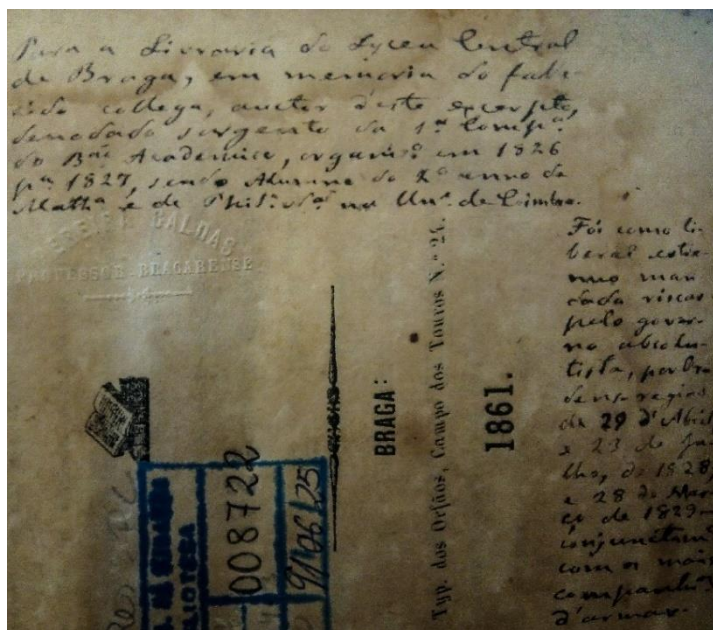 Para a Livraria do Lyceu Central
de Braga, em memoria do falle-
cido collega, auctor d'este excerpto,
denodado sargento da 1ª Compª.
do Bãm Academico, organisº em 1826
pª 1827, sendo Alumno do 2º anno de
Mathª e de Philª na Unª. de Coimbra.
PEREIRA CALDAS
PROFESSOR-BRACARENSE
Foi como li-
beral estre-
mado man-
dado riscar
pelo gover-
no absolu-
tista, por
de 29 d'Abril
e 23 de Ju-
lho, de 1828,
e 28 de Mar-
ço de 1829–
conjunctamᵗᵉ
com os mais
companhºs
d'armas.
BRAGA:
Typ. dos Orfãos, Campo dos Touros N.º 24.
1861.
008722